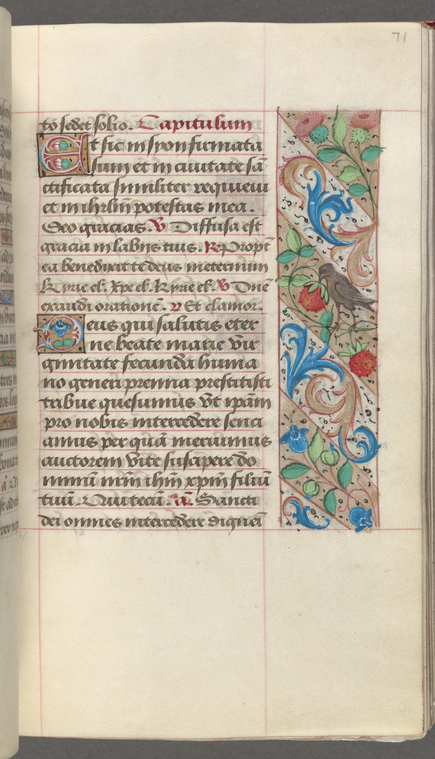 71
to sedet solio. Capitulum
Et sic in syon firmata
sum et in ciuitate sā
ctificata similiter requieui
et in ihrlm̄ potestas mea.
Deo gracias. V Diffusa est
gracia in labijs tuis. R Propt
ea benedixit te deus in eternum
Kyrie el. Xpe el. Kyrie el. V Dn̄e
exaudi orationē. V Et clamor.
Deus qui salutis eter
ne beate marie vir
ginitate fecunda huma
no generi premia prestitisti
tribue quesumus vt ipām
pro nobis intercedere senci
amus per quā meruimus
auctorem vite suscipere do
minū nr̄m ihm̄ xpm̄ filiū
tuū. Qui tecū. añ. Sancti
dei omnes intercedere dignem̄